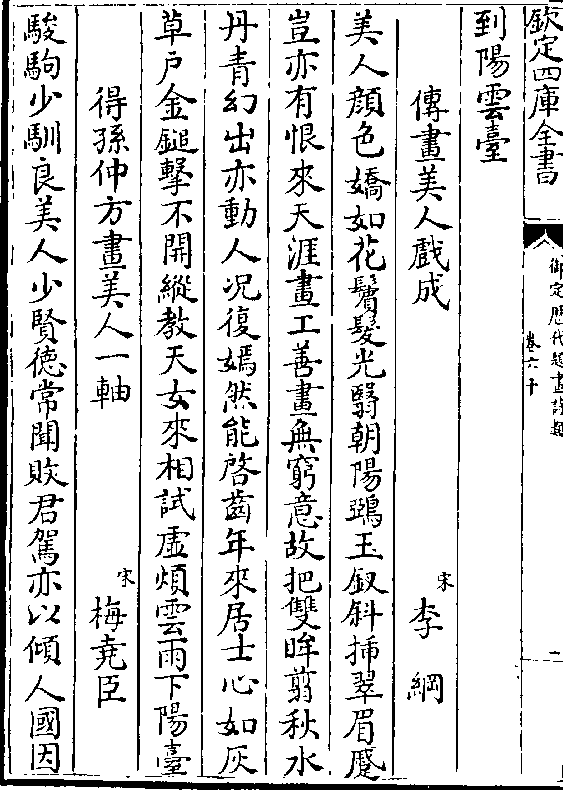 欽定四庫全書
御定歷代題畫詩類
卷六十
到陽雲臺
傳畫美人戲成 宋 李綱
美人顔色嬌如花鬢髮光翳朝陽鵶玉釵斜揷翠眉蹙
豈亦有恨來天涯畫工善畫無窮意故把雙眸翦秋水
丹青幻出亦動人况復嫣然能啓齒年來居士心如灰
草户金鎚擊不開縱教天女來相試虛煩雲雨下陽臺
得孫仲方畫美人一軸 宋 梅堯臣
駿駒少馴良美人少賢德常聞敗君駕亦以傾人國因